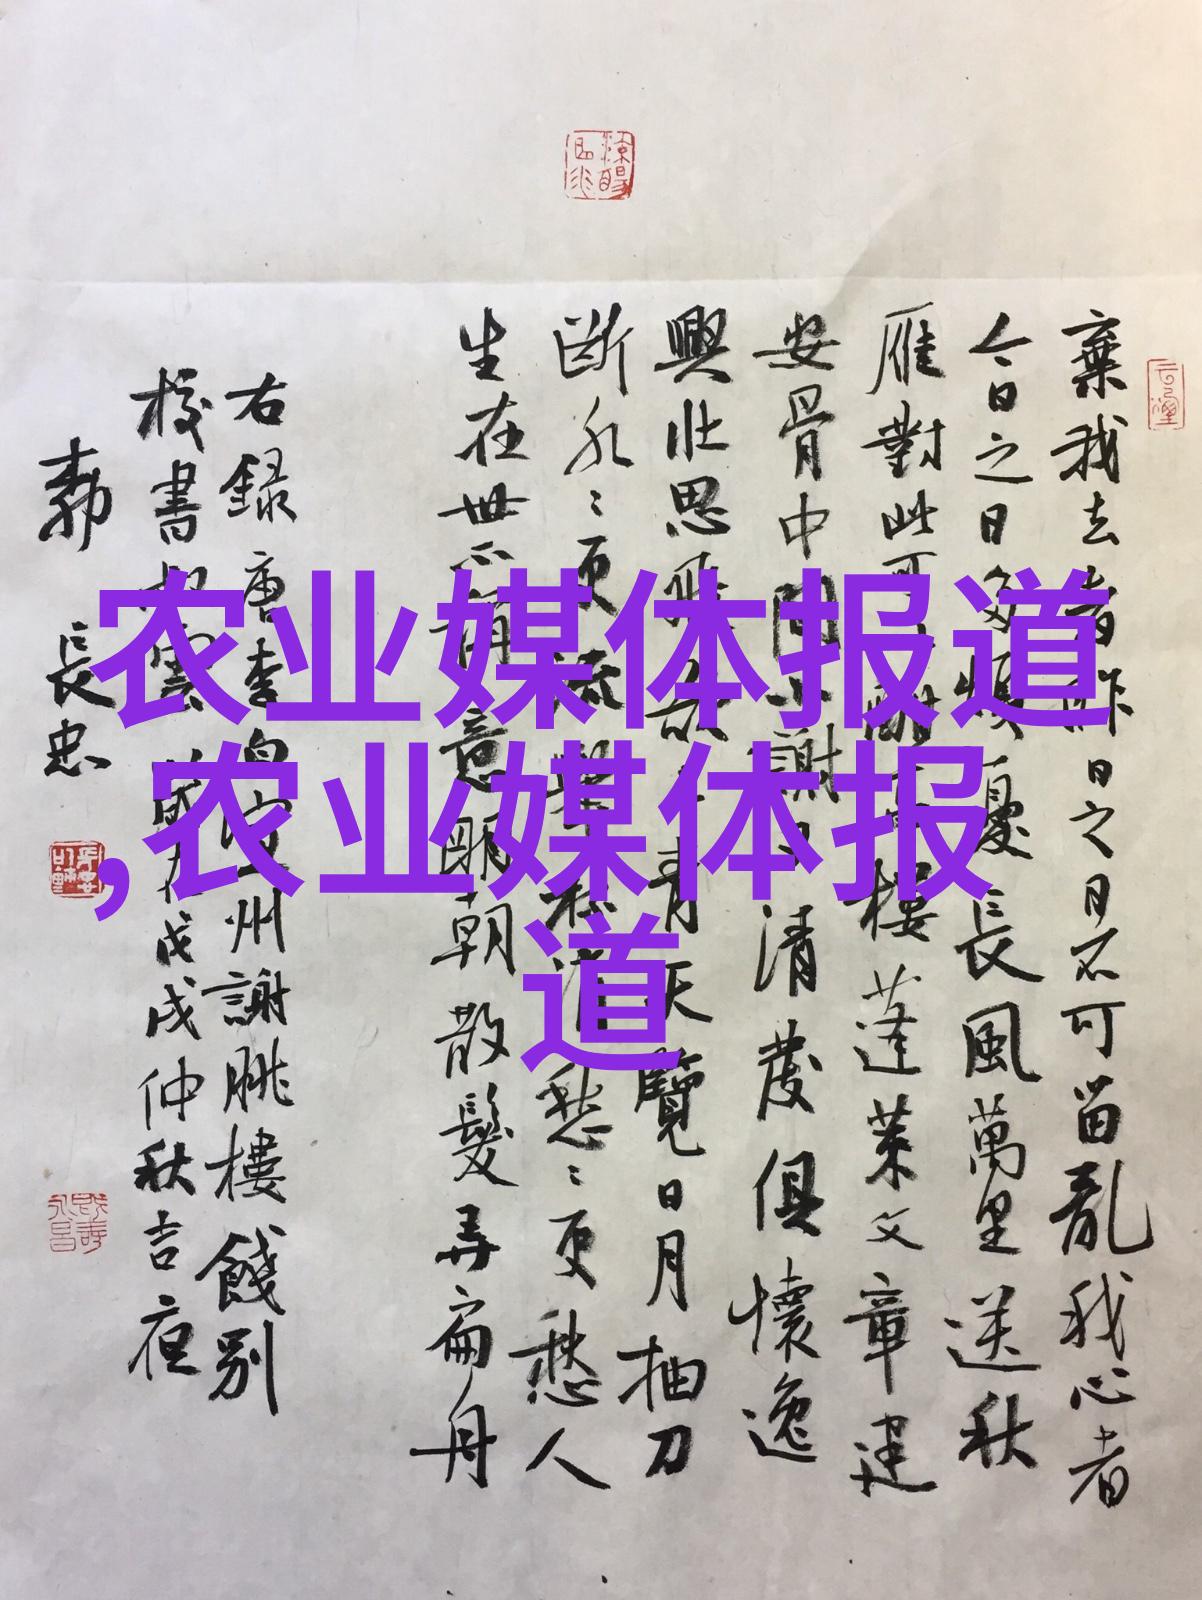 农业媒体报道
,农业媒体报
道
棄我去者昨日之日不可留亂我心者
今日之日多煩憂長風萬里送秋
雁對此可酣高樓蓬萊文章建
安骨中間小謝又清發俱懷逸
興壯思飛欲上青天覽日月抽刀
斷水水更流舉杯消愁愁更愁人
生在世不稱意明朝散髮弄扁舟
右録唐李白宣州謝朓樓餞別
校書叔雲 戊戌仲秋吉夜
長忠